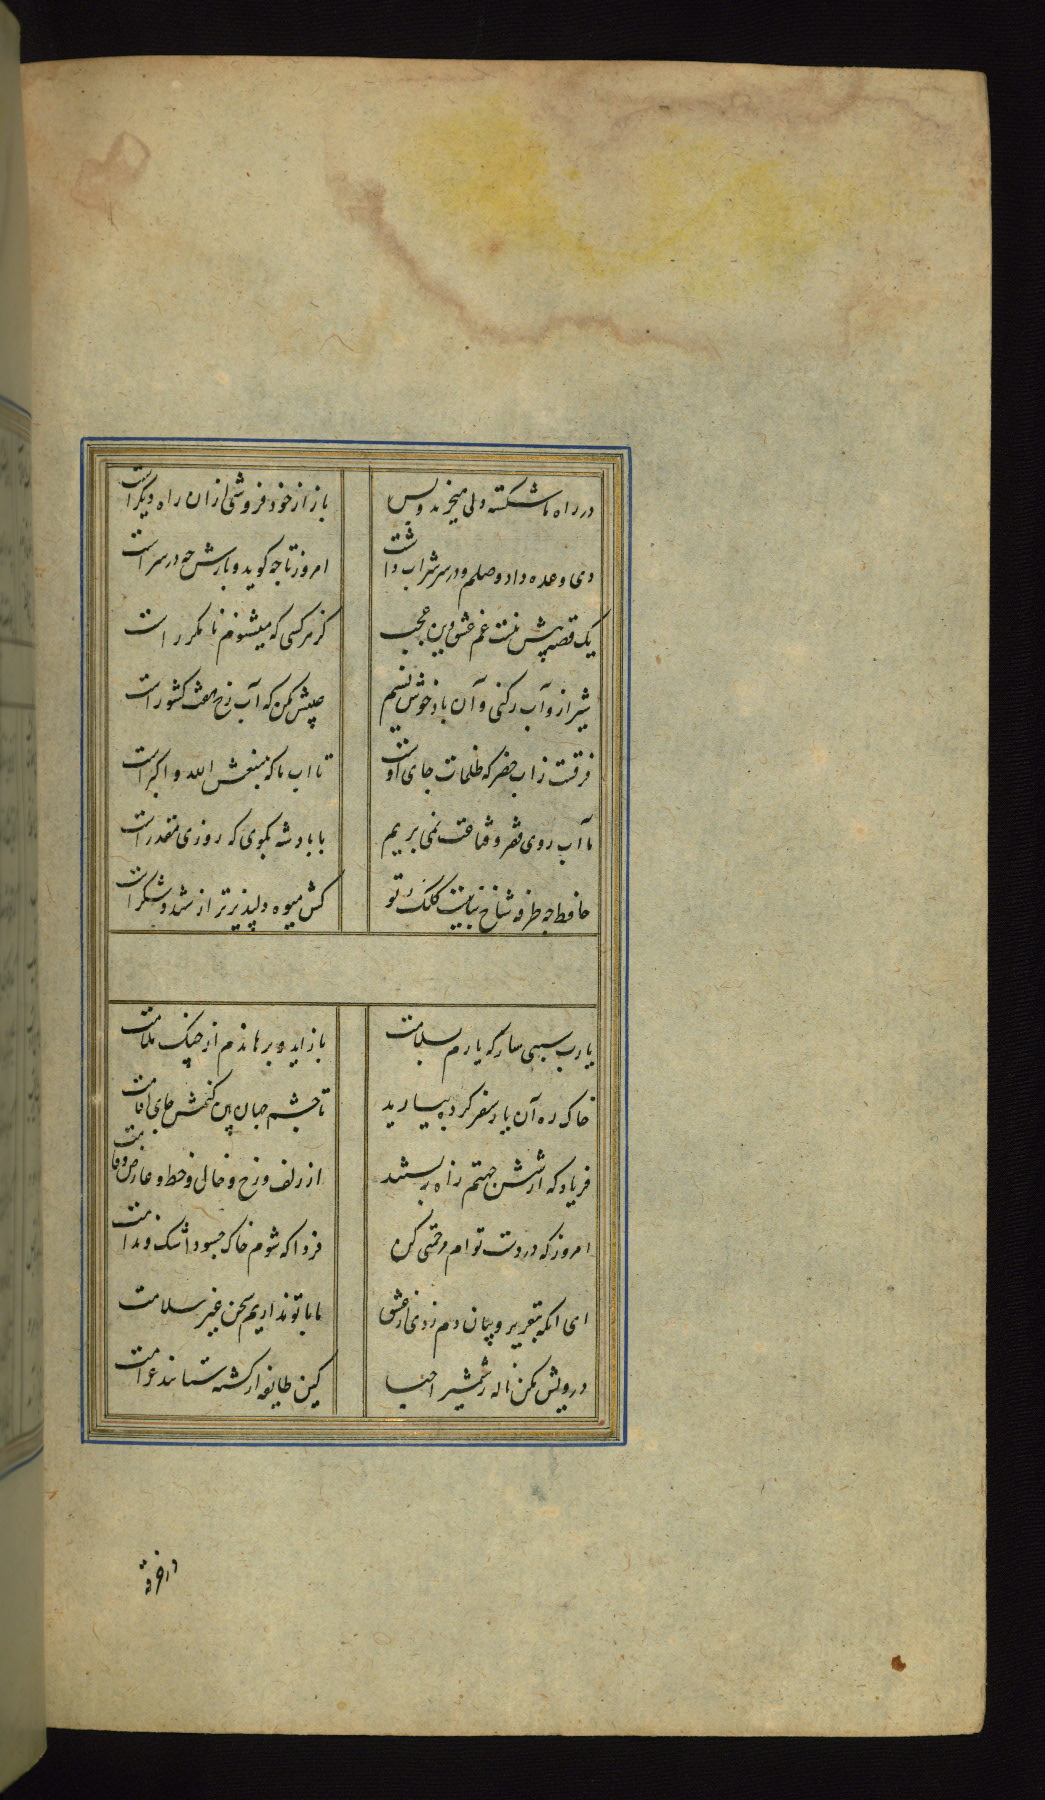 در راه ما شکسته دلی میخرند و بس بازار خود فروشی از ان راه دیکر است
دی وعده داد وصلم و در سر شراب داشت امروز تا چه کوید و بازش چه در سر است
یک قصه پیش نیست غم عشق وین عجب کز هر کسی که میشنوم نا مکرر است
شیراز و آب رکنی و آن باد خوش نسیم عیبش مکن که آب رخ هفت کشور است
فرقست زاب خضر که ظلمات جای اوست تا اب ما که منبعش الله و اکبر است
ما آب روی فقر و قناعت نمی بریم با بادشه بکوی که روزی مقدر است
حافظ چه طرفه شاخ نباتیست کلک تو کش میوه دلپذیرتر از شهد و شکر است
یا رب سببی ساز که یارم بسلامت باز اید و برهاندم از چنک ملامت
خاک ره آن یار سفر کرده بیارید تا چشم جهان بین کنمش جای اقامت
فریاد که از شش جهتم راه ببستند از زلف و رخ و خال و خط و عارض و قامت
امروز که در دست توام رحمتی کن فردا که شوم خاک چسود اشک ندامت
ای انکه بتقریر و بیان دم زدی از عشق ما با تو نداریم سخن غیر سلامت
درویش مکن ناله ز شمشیر احبا کین طایفه از کشته ستانند غرامت